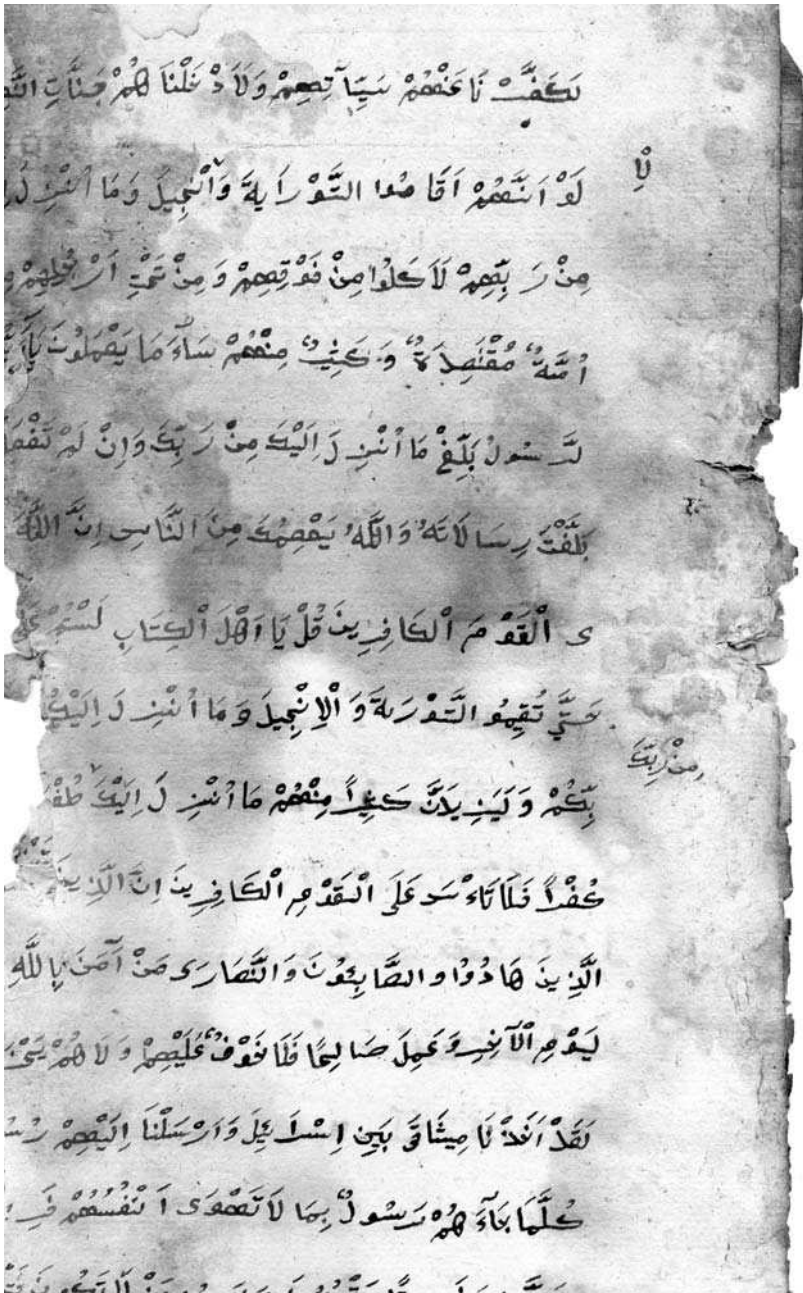 لَكَفَّرْ نَا عَنْهُمْ سَيِّآ تِهِمْ وَلَاَ دْ خَلْنَا هُمْ جَنَّاتِ
لَوْ اَنَّهُمْ اَقَا مُوا التَّوْ رَايةَ وَالْنْجِيلَ وَمَا اُنْزِ لَ
لْاِ
مِنْ رَ بِّهِمْ لَاَ كَلُوا مِنْ فَوْ قِهِمْ وَ مِنْ تَحْتِ اَرْ جُلِهِمْ
اُمَّةٌ مُقْتَصِدَ ةٌ وَ كَثِيرٌ مِنْهُمْ سَآءَ مَا يَعْمَلُونَ
لرَّ سُولُ بَلِّغْ مَا اُنْزِ لَ اِلَيْكَ مِنْ رَ بِّكَ وَاِنْ لَمْ
بَلَّغْتَ رِسَا لَاتَهُ وَاللّٰهُ يَعْصِمُكَ مِنَ النَّاسِ اِنَّ اللّٰهَ
ى الْقَوْ مَ الْكَا فِرِ ينَ قُلْ يَا اَهْلَ الْكِتَابِ لَسْتُمْ
حَتَّي تُقِيمُو التَّوْرَىةَ وَ الْاِنْجِيلَ وَ مَا اُنْزِ لَ
مِنْ رَبِّكَ
بِّكُمْ وَ لَيَزِ يدَنَّ كَثِيراً مِنْهُمْ مَا اُنْزِ لَ اِلَيْكَ
كُفْراً فَلَا تَاءْ سَ عَلَى الْقَوْ مِ الْكَا فِرِ ينَ اِنَّ الَّذِينَ
الَّذِينَ هَا دُوا و الصَّا بِئُونَ وَ النَّصَارَى مَنْ آمَنَ بِاللّٰهِ
لْيَوْ مِ الْآخِرِ وَ عَمِلَ صَا لِحًا فَلَا خَوْفٌ عَلَيْهِمْ وَ لَا هُمْ
لَقَدْ اَخَذْ نَا مِيثَاقَ بَنِي اِسْرَا ئِلَ وَاَرْ سَلْنَا اِلَيْهِمْ
كُلَّمَا جَآءَ هُمْ رَسُولٌ بِمَا لَا تَهْوَى اَ نْفُسُهُمْ